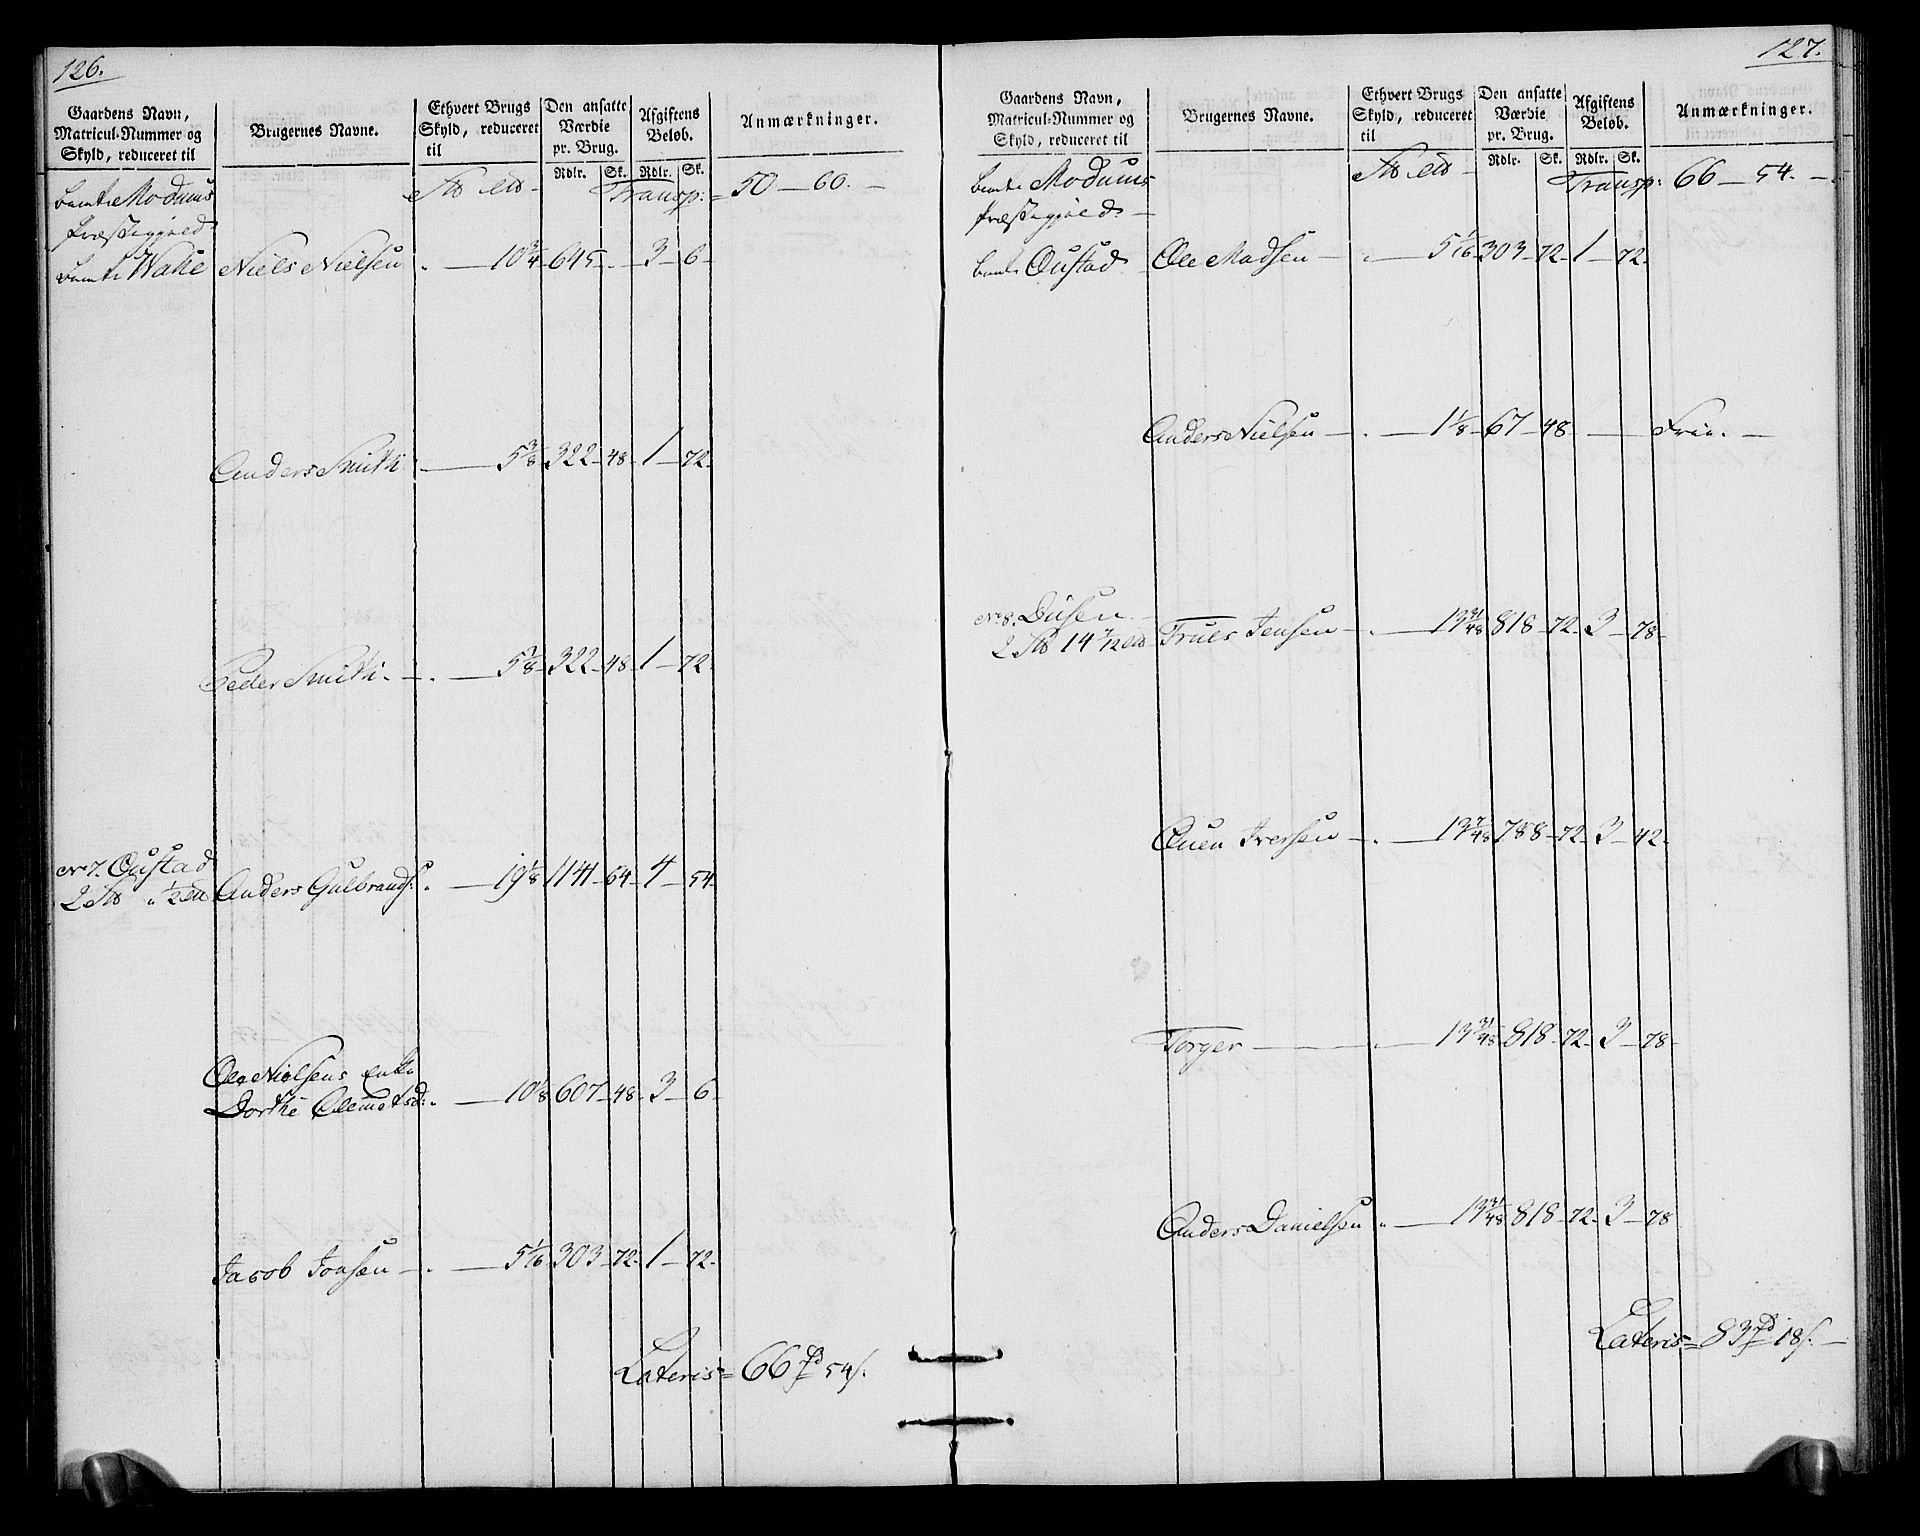 126.
Gaardens Navn, Matricul-Nummer og Skyld, reduceret til
Brugernes Navne.
Ethvert Brugs Skyld, reduceret til
Den ansatte Værdie pr. Brug.
Afgiftens Beløb.
Anmærkninger.
Rdlr. Sk. Rdlr. Sk.
bemte Modums Transp: = 50 — 60. —
Præstegjeld
bemte Watte Niels Nielsen . — 10 3/4 — 645 — . — 3 — 6 —
Anders Smith . — 5 3/8 — 322 — 48 — 1 — 72 —
Peder Smith . — . — 5 3/8 — 322 — 48 — 1 — 72 —
No 7. Oustad
2 " 1/2 Anders Gulbrands: . — 19 1/8 — 1141 — 64 — 4 — 54 —
Ole Nielsens Enke
Dorthe Clemetsd: . — 10 1/8 — 607 — 48 — 3 — 6 —
Jacob Jonsen — . — 5 1/16 — 303 — 72 — 1 — 72 —
Lateris = 66 rd 54 s.
127.
Gaardens Navn, Matricul-Nummer og Skyld, reduceret til
Brugernes Navne.
Ethvert Brugs Skyld, reduceret til
Den ansatte Værdie pr. Brug.
Afgiftens Beløb.
Anmærkninger.
Rdlr. Sk. Rdlr. Sk.
bemte Modums Transp: 66 — 54. —
Præstegjeld —
bemte Oustad Ole Madsen — . — 5 1/16 — 303 — 72 — 1 — 72 —
Anders Nielsen — . — 1 1/8 — 67 — 48 — Frie. —
No 8. Diisen
2 14 7/12 Truls Jensen — . — 13 31/48 — 818 — 72 — 3 — 78 —
Ouen Iversen — . — 13 7/48 — 788 — 72 — 3 — 42 —
Torger — . — 13 31/48 — 818 — 72 — 3 — 78 —
Anders Danielsen . — 13 31/48 — 818 — 72 — 3 — 78
Lateris = 83 rd 18 s. —